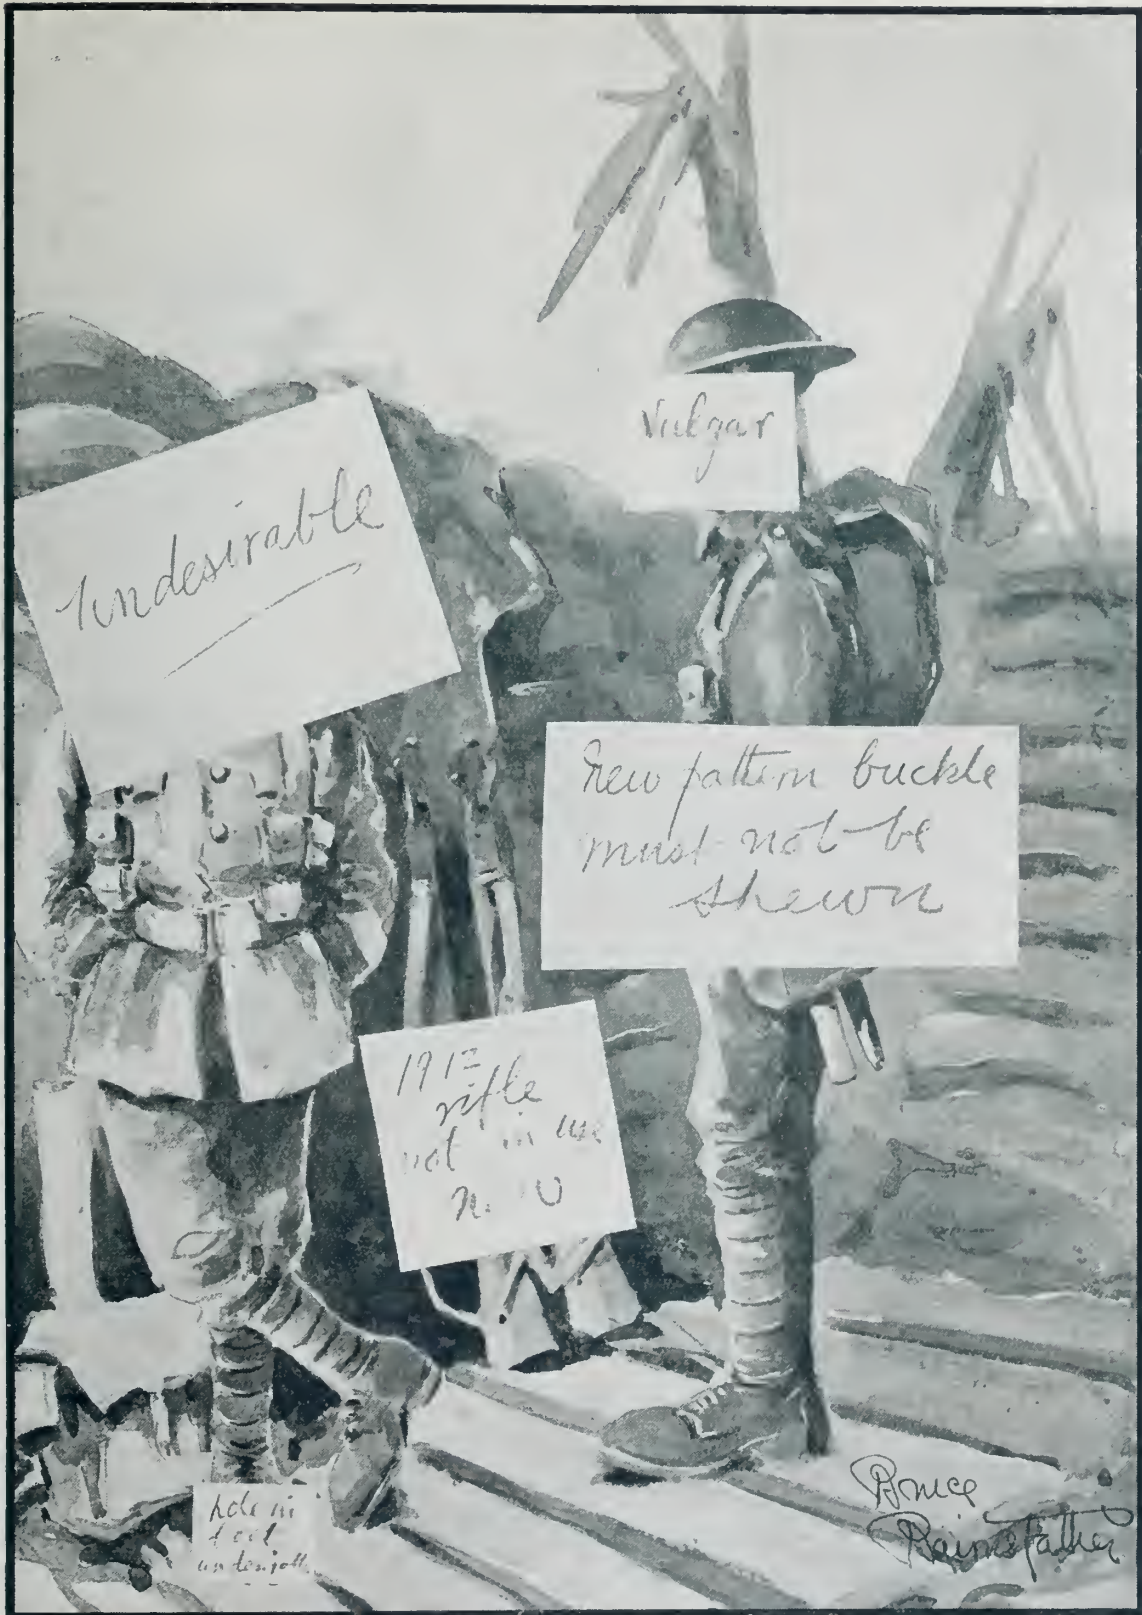 Vulgar
Undesirable
New pattern buckle
must not be
shewn
1917
rifle
not in use
hole in
Bruce
Bairnsfather